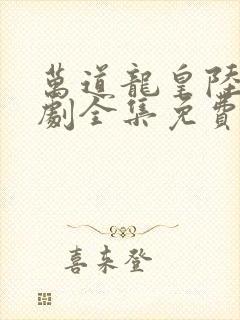 萬道龍皇陸
劇全集免費
喜來登